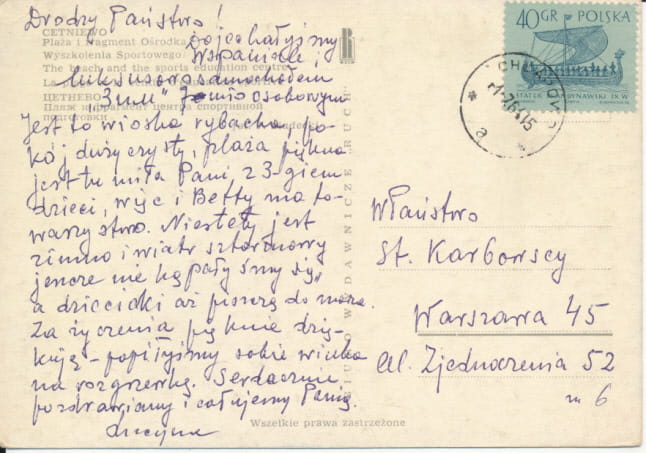 Drodzy Państwo!
CETNIEWO
Plaża i fragment Ośrodka
Wyszkolenia Sportowego
The beach and the sports education centre
ЦЕТНЕВО
Пляж и фрагмент центра спортивной
подготовки
Dojechałyśmy
wspaniale i
luksusowo samochodem
"Zim" 7-mio osobowym
Jest to wioska rybacka, po-
kój duży czysty, plaża piękna
jest tu miła Pani, z 3-giem
dzieci, więc i Betty ma to-
warzystwo. Niestety jest
zimno i wiatr sztormowy
jeszcze nie kąpałyśmy się,
a dzieciaki aż piszczą do morza.
Za życzenia pięknie dzię-
kuję - popiłyśmy sobie winka
na rozgrzewkę. Serdecznie
pozdrawiamy i całujemy Panią
BIURO WYDAWNICZE „RUCH"
Wszelkie prawa zastrzeżone
40 GR POLSKA
WPaństwo
St. Karborscy
Warszawa 45
al. Zjednoczenia 52
m 6